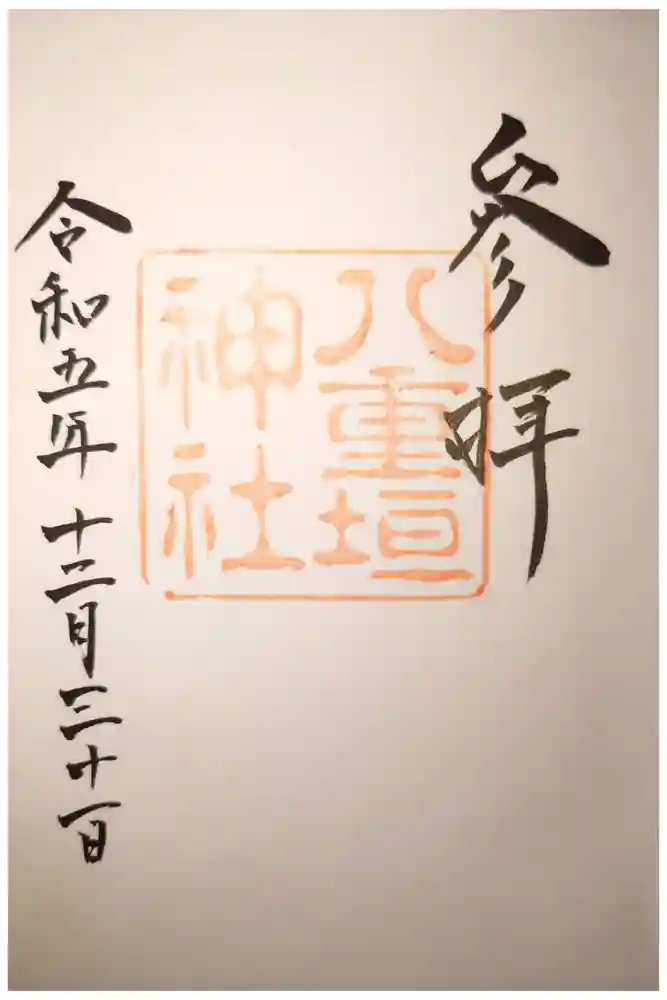 參拜
八重垣
神社
令和五年十二月三十一日